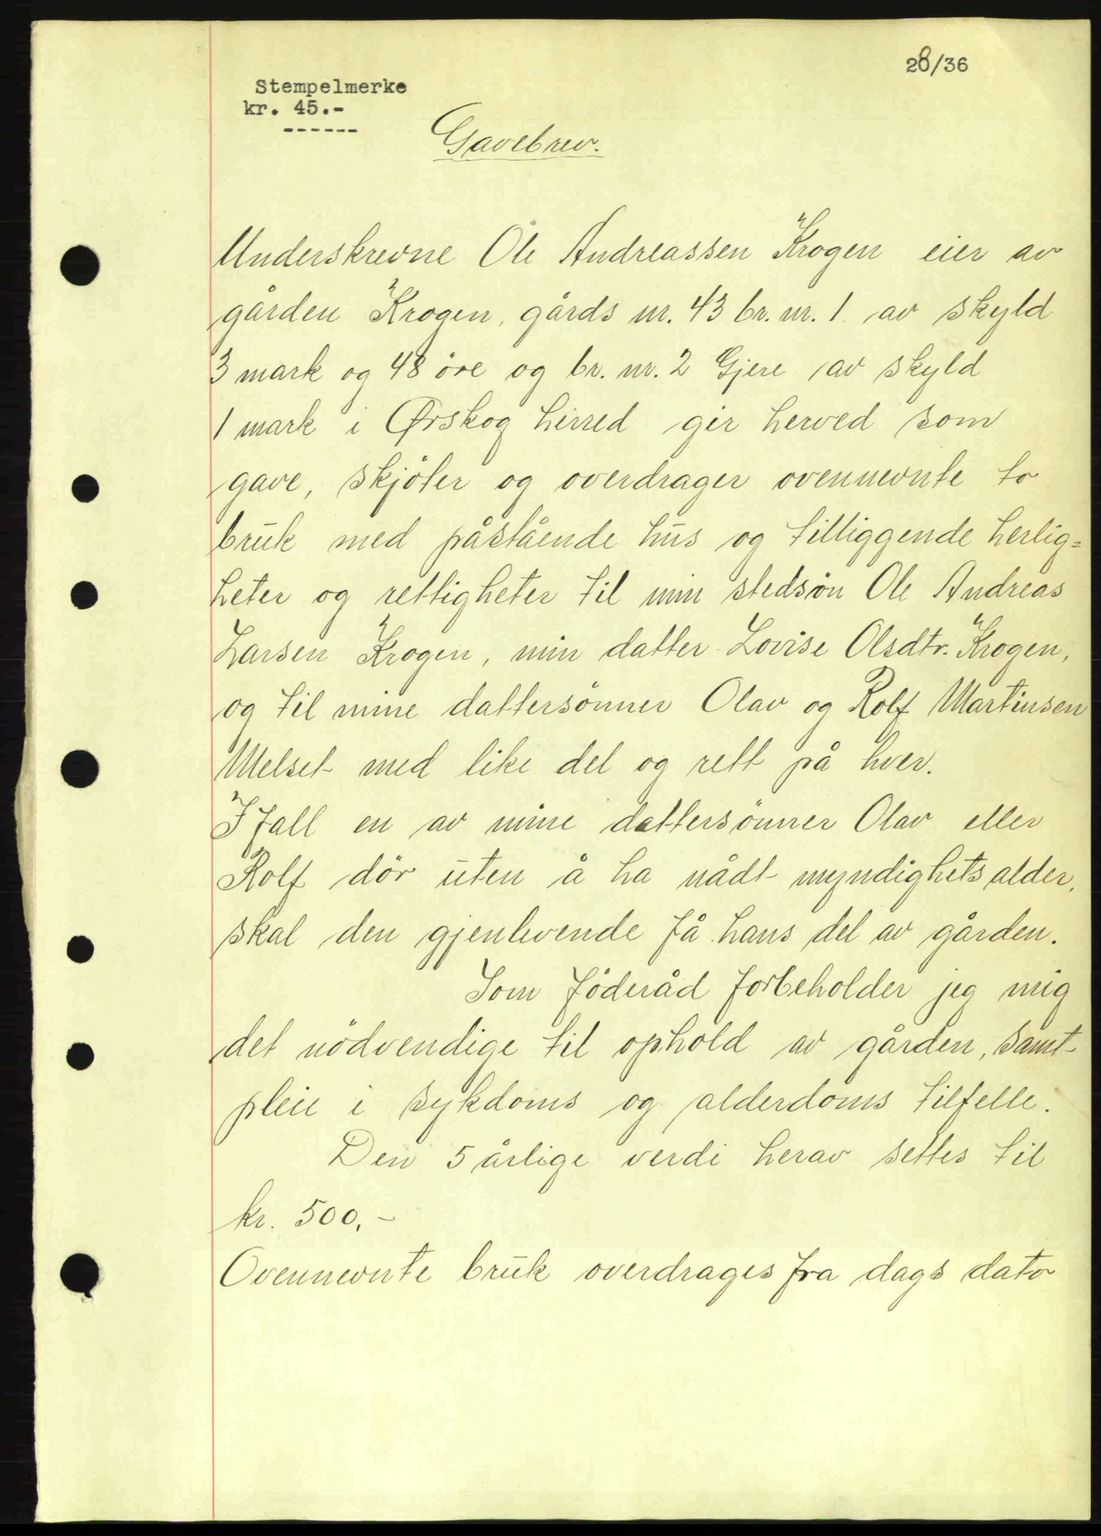 28/36
Stempelmerke
kr. 45.-
------
Gavebrev.
Underskrevne Ole Andreassen Krogen eier av
gården Krogen, gårds nr. 43 br. nr. 1 av skyld
3 mark og 48 öre og br. nr. 2 Gjere av skyld
1 mark i Ørskog herred gir herved som
gave, skjöter og overdrager ovennevnte to
bruk med påstående hus og tilliggende herlig=
heter og rettigheter til min stedsön Ole Andreas
Larsen Krogen, min datter Lovise Olsdtr. Krogen,
og til mine dattersönner Olav og Rolf Martinsen
Melset med like del og rett på hver.
Ifall en av mine dattersönner Olav eller
Rolf dör uten å ha nådt myndighetsalder,
skal den gjenlevende få hans del av gården.
Som föderåd forbeholder jeg mig
det nödvendige til ophold av gården, samt
pleie i sykdoms og alderdoms tilfelle.
Den 5 årlige verdi herav settes til
kr. 500,-
Ovennevnte bruk overdrages fra dags dato